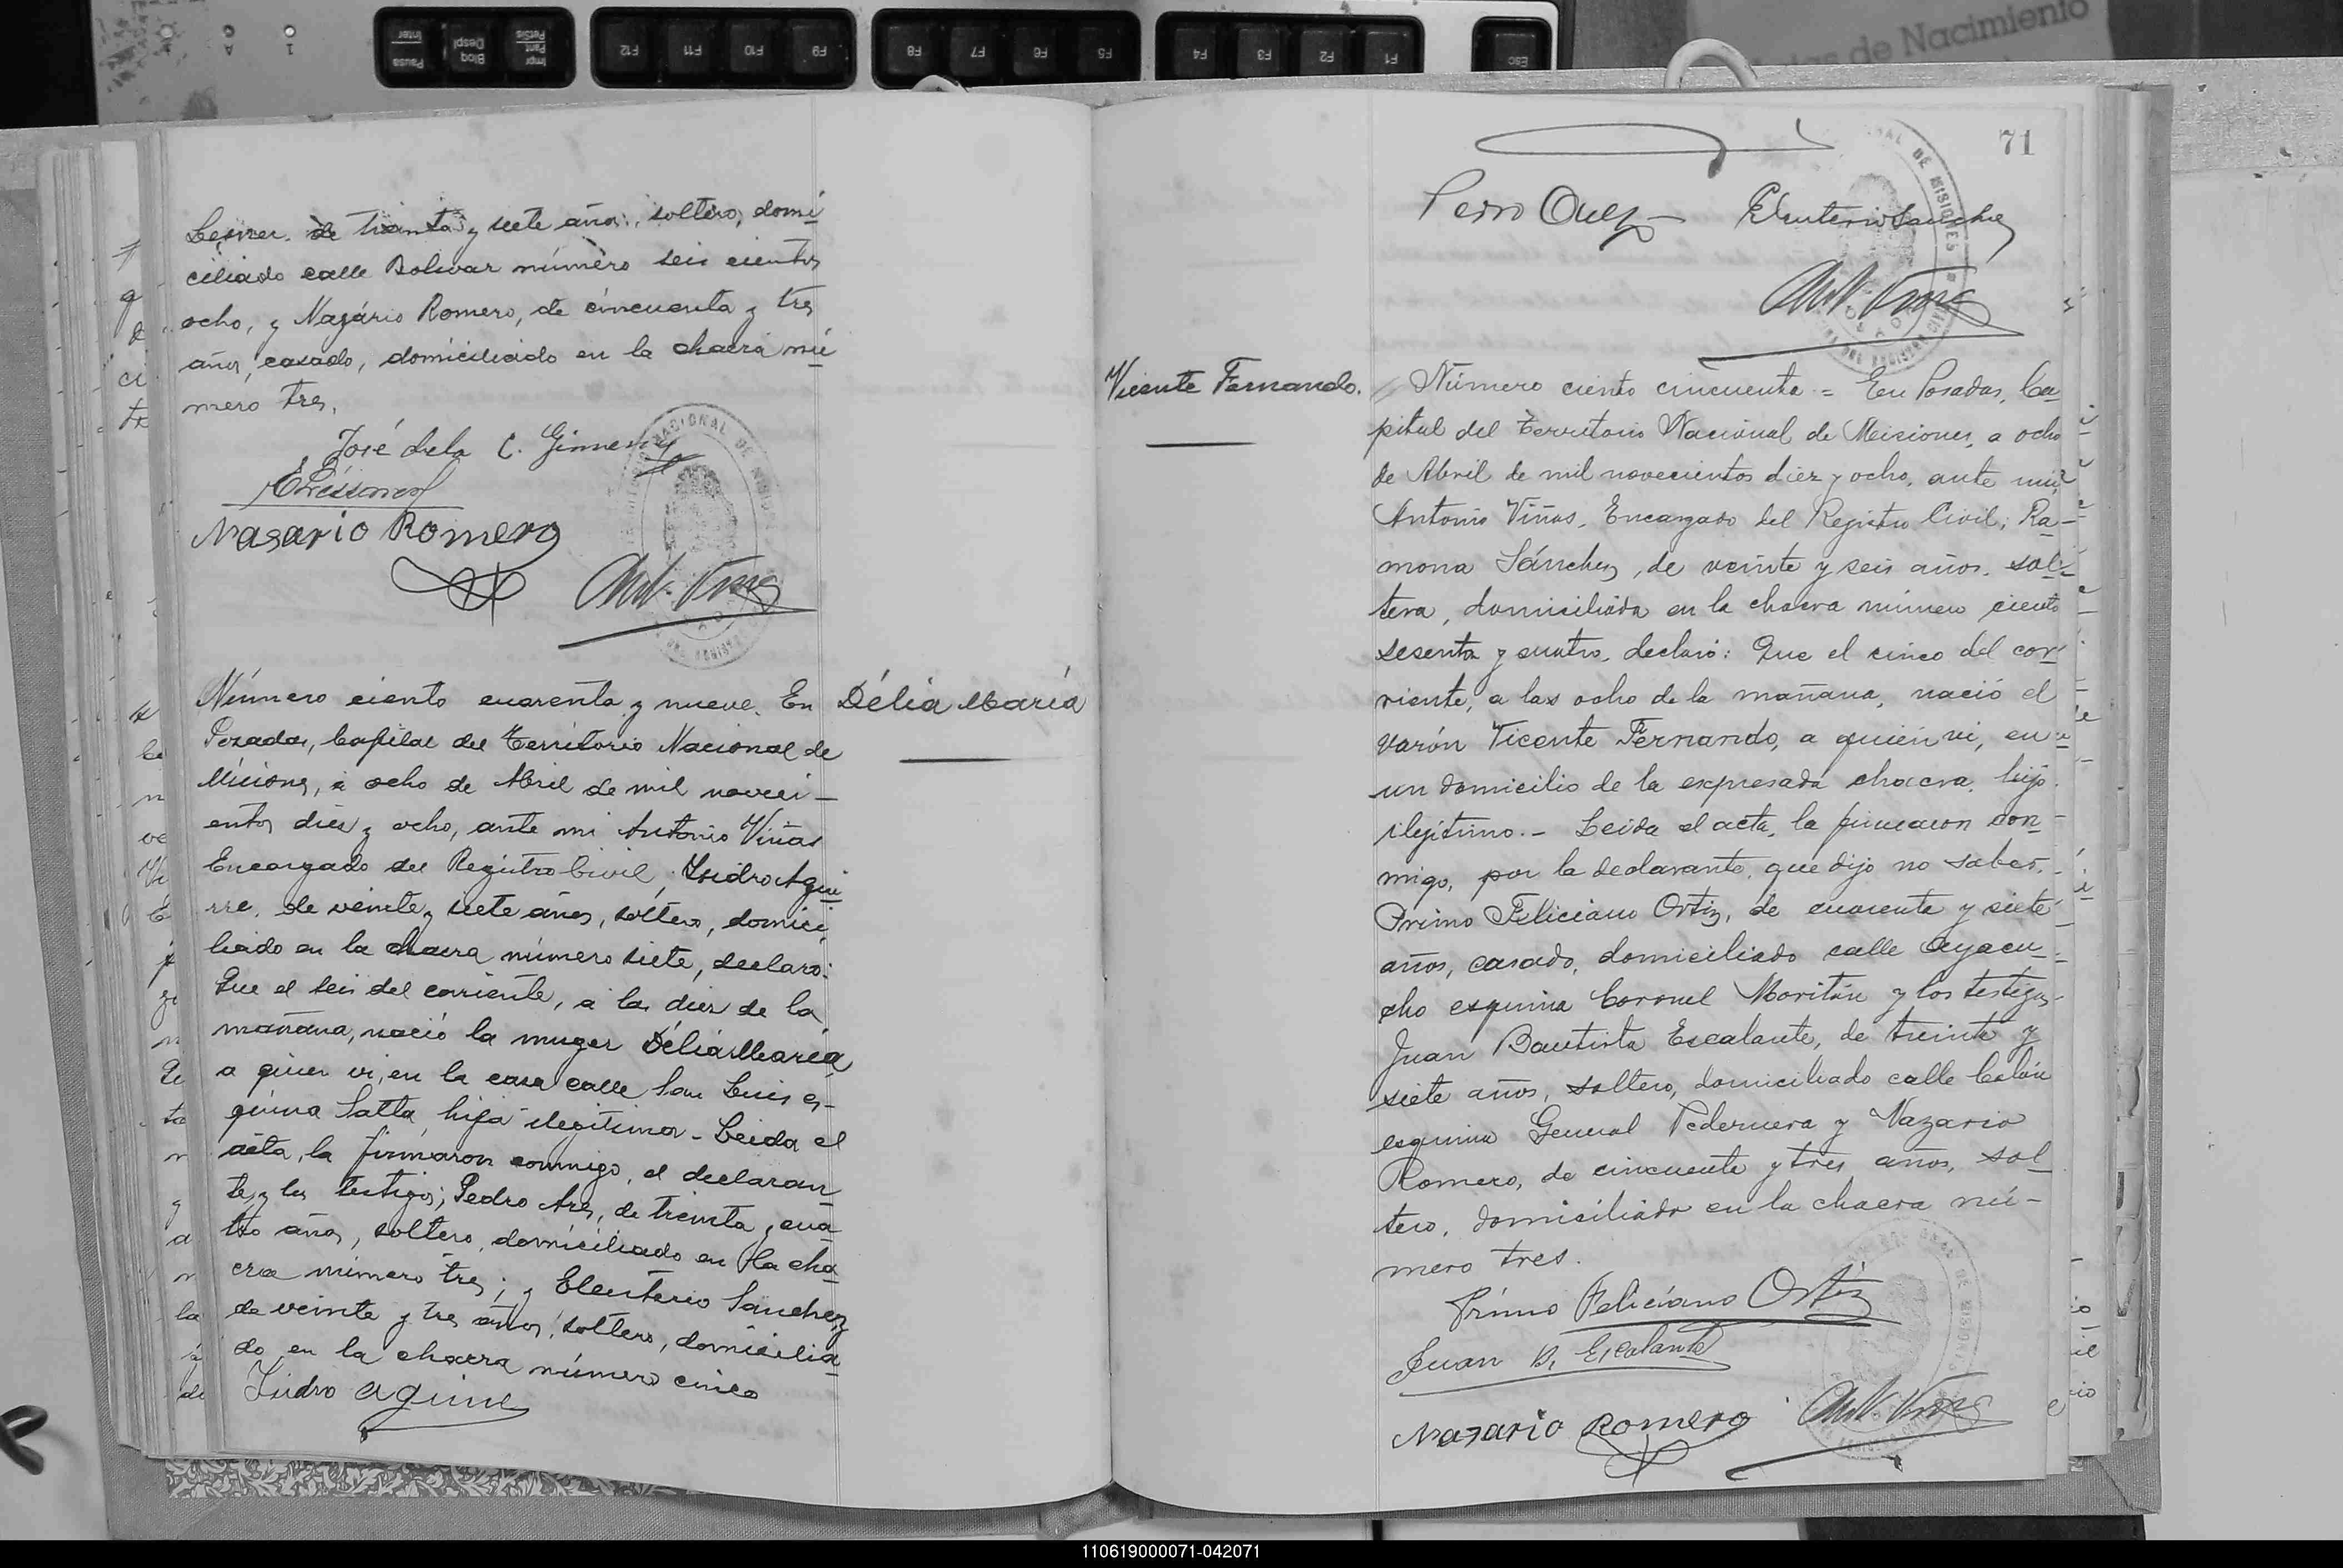 de Nacimiento
71
de treinta y siete años, soltero, domi
ciliado calle Bolivar número seis cientos
ocho, y Nazário Romero, de cincuenta y tres
años, casado, domiciliado en la chacra nú
mero tres.
José de la C. Gimenez
Nasario Romero
Número ciento cuarenta y nueve. En
Délia María
Posadas, Capital del Território Nacional de
Misiones, á ocho de Abril de mil noveci-
entos diez y ocho, ante mi Antonio Viñas
Encargado del Registro Civil, Isidro Agui
rre, de veinte y siete años, soltero, domici
liado en la chacra número siete, declaró:
Que el seis del corriente, á las diez de la
mañana, nació la muger Délia María
a quien vi, en la casa calle San Luis es-
quina Salta, hija ilegítima - Leida el
acta, la firmaron conmigo, el declaran
te y los testigos; Pedro de treinta y cua
tro años, soltero, domiciliado en la cha
cra número tres; y Eleuterio Sanchez
de veinte y tres años, soltero, domicilia
do en la chacra número cinco
Isidro Aguirre
Pedro Eleuterio Sanchez
Ant. Viñas
Vicente Fernando.
Número ciento cincuenta = En Posadas, Ca
pital del Território Nacional de Misiones, a ocho
de Abril de mil novecientos diez y ocho, ante mi,
Antonio Viñas, Encargado del Registro Civil; Ra-
mona Sánchez, de veinte y seis años, sol-
tera, domiciliada en la chacra número ciento
sesenta y cuatro, declaró: Que el cinco del cor
riente, a las ocho de la mañana, nació el
varón Vicente Fernando, a quien vi, en
un domicilio de la expresada chacra, hijo
ilegítimo.- Leida el acta, la firmaron con
migo, por la declarante, que dijo no saber,
Primo Feliciano Ortiz, de cuarenta y siete
años, casado, domiciliado calle Ayacu-
cho esquina Coronel Moritán y los testigos
Juan Bautista Escalante, de treinta y
siete años, soltero, domiciliado calle Colón
esquina General Pedernera y Nazario
Romero, de cincuenta y tres años, sol
tero, domiciliado en la chacra nú-
mero tres.
Primo Feliciano Ortiz
Juan B. Escalante
Nasario Romero
Ant. Viñas
110619000071-042071